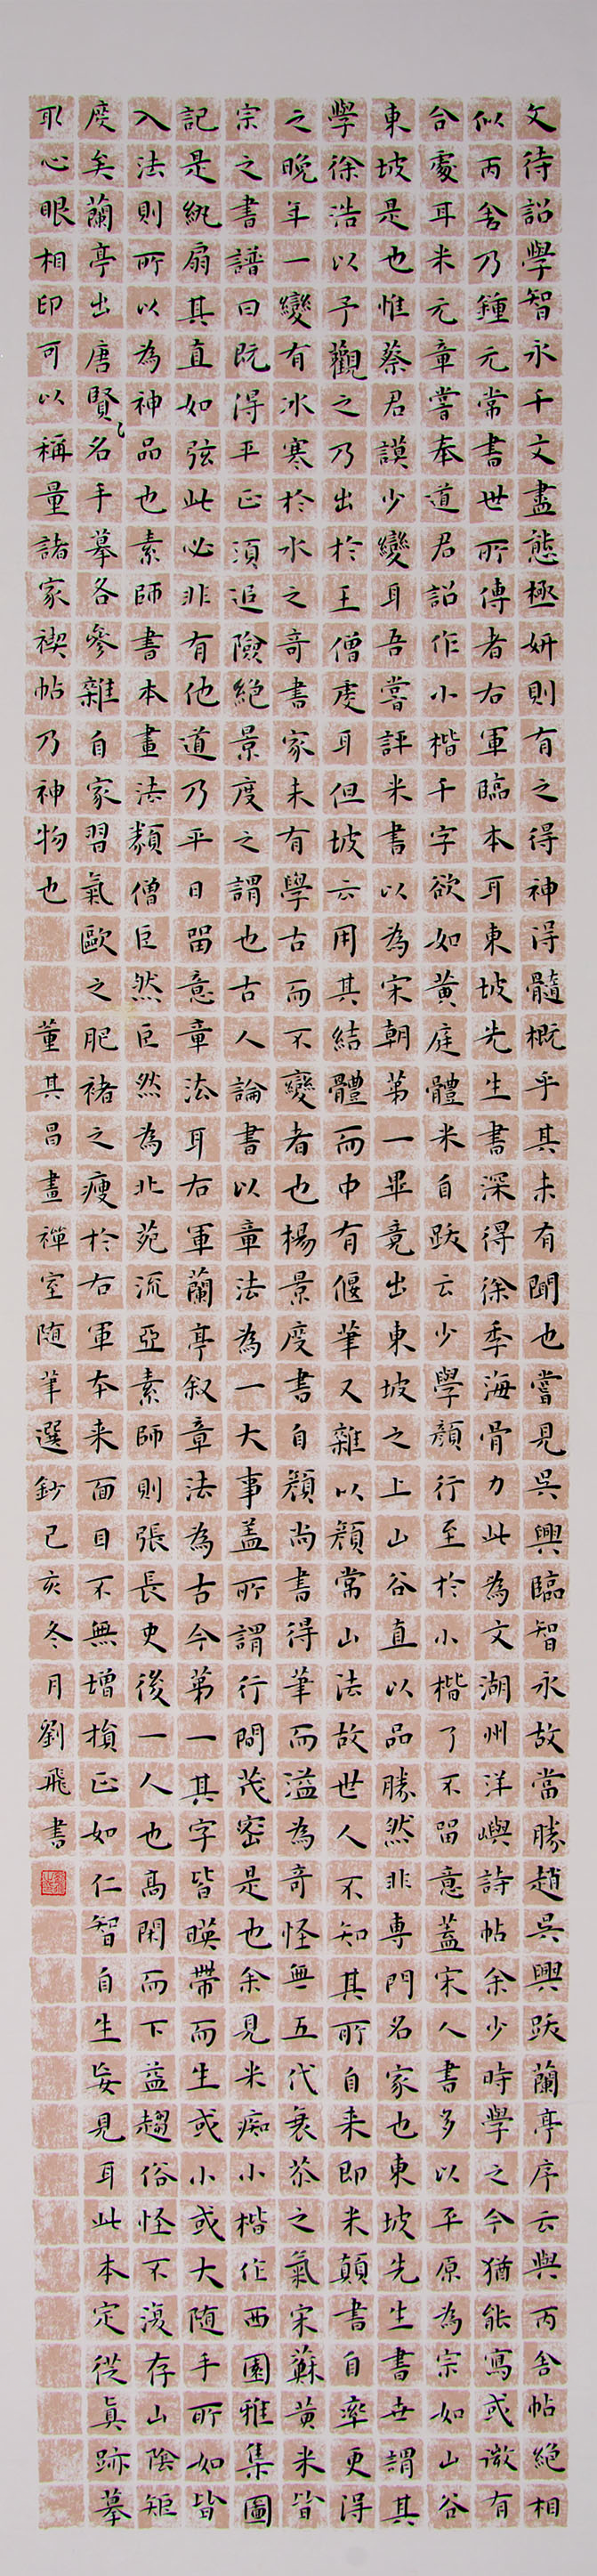 文待詔學智永千文盡態極妍則有之得神得髓概乎其未有聞也嘗見吳興臨智永故當勝趙吳興跋蘭亭序云與丙舍帖絕相
似丙舍乃鍾元常書世所傳者右軍臨本耳東坡先生書深得徐季海骨力此為文湖州洋嶼詩帖余少時學之今猶能寫或微有
合處耳米元章嘗奉道君詔作小楷千字欲如黃庭體米自跋云少學顏行至於小楷了不留意蓋宋人書多以平原為宗如山谷
東坡是也惟蔡君謨少變耳吾嘗評米書以為宋朝第一畢竟出東坡之上山谷直以品勝然非專門名家也東坡先生書世謂其
學徐浩以予觀之乃出於王僧虔耳但坡云用其結體而中有偃筆又雜以顏常山法故世人不知其所自来即米顛書自率更得
之晚年一變有冰寒於水之奇書家未有學古而不變者也楊景度書自顏尚書得筆而溢為奇怪無五代衰苶之氣宋蘇黃米皆
宗之書譜曰既得平正須追險絕景度之謂也古人論書以章法為一大事蓋所謂行間茂密是也余見米痴小楷作西園雅集圖
記是紈扇其直如弦此必非有他道乃平日留意章法耳右軍蘭亭叙章法為古今第一其字皆暎帶而生或小或大随手所如皆
入法則所以為神品也素師書本畫法類僧巨然巨然為北苑流亞素師則張長史後一人也高閑而下益趨俗怪不復存山陰矩
度矣蘭亭出唐賢名手摹各參雜自家習氣歐之肥褚之瘦於右軍本来面目不無增損正如仁智自生妄見耳此本定從真跡摹
取心眼相印可以稱量諸家禊帖乃神物也 董其昌畫禪室随筆選鈔己亥冬月劉飛書